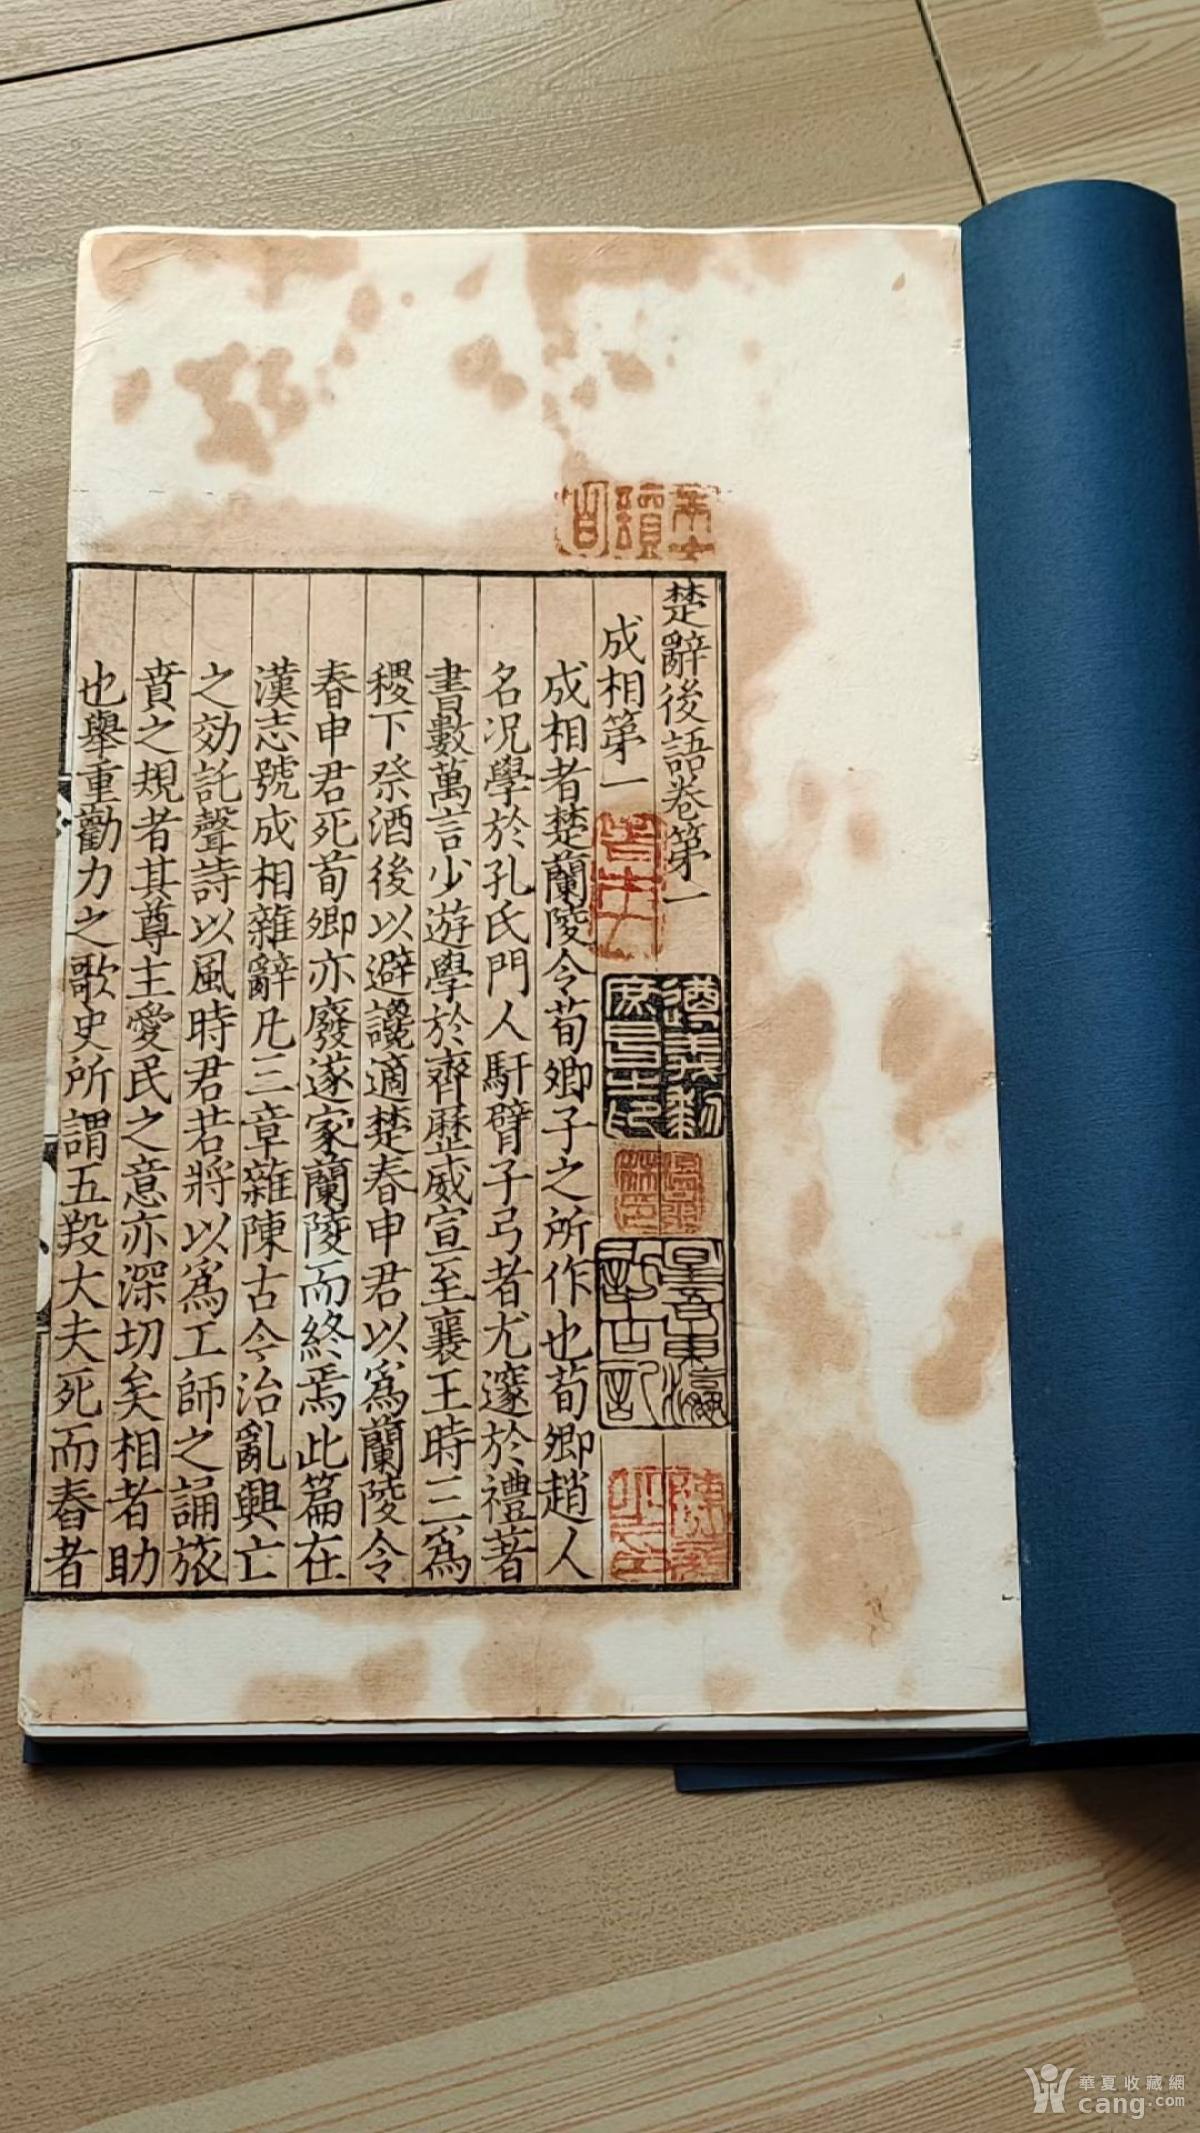 楚辭後語卷第一
成相第一
成相者楚蘭陵令荀卿子之所作也荀卿趙人
名況學於孔氏門人馯臂子弓者尤邃於禮著
書數萬言少遊學於齊歷威宣至襄王時三爲
稷下祭酒後以避讒適楚春申君以爲蘭陵令
春申君死荀卿亦廢遂家蘭陵而終焉此篇在
漢志號成相雜辭凡三章雜陳古今治亂興亡
之効託聲詩以風時君若將以爲工師之誦旅
賁之規者其尊主愛民之意亦深切矣相者助
也舉重勸力之歌史所謂五羖大夫死而舂者
遵義黎庶昌之印
星吾東瀛訪古記
華夏收藏網
cang.com